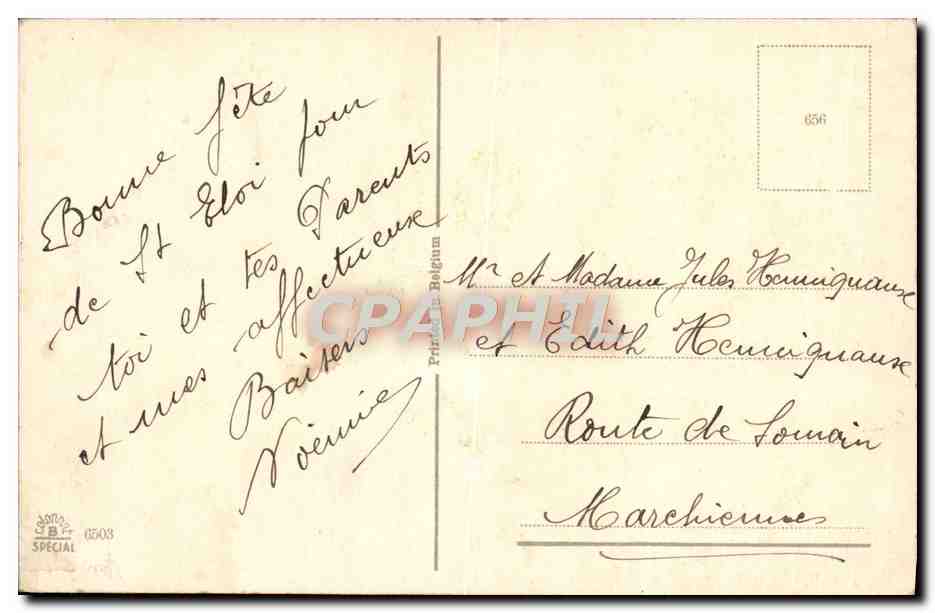 Bonne fête
de St Eloi pour
toi et tes Parents
et mes affectueuse
Baisers
Noémie
Printed in Belgium
656
Mr et Madame Jules Hennignause
et Edith Hennignause
Route de Somain
Marchiennes
B
SPECIAL
6503
CPAPHIL